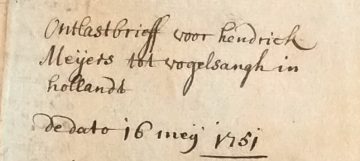 Ontlastbrieff voor hendrick
Meÿers tot vogelsangh in
hollandt
de dato 16 meÿ 1751